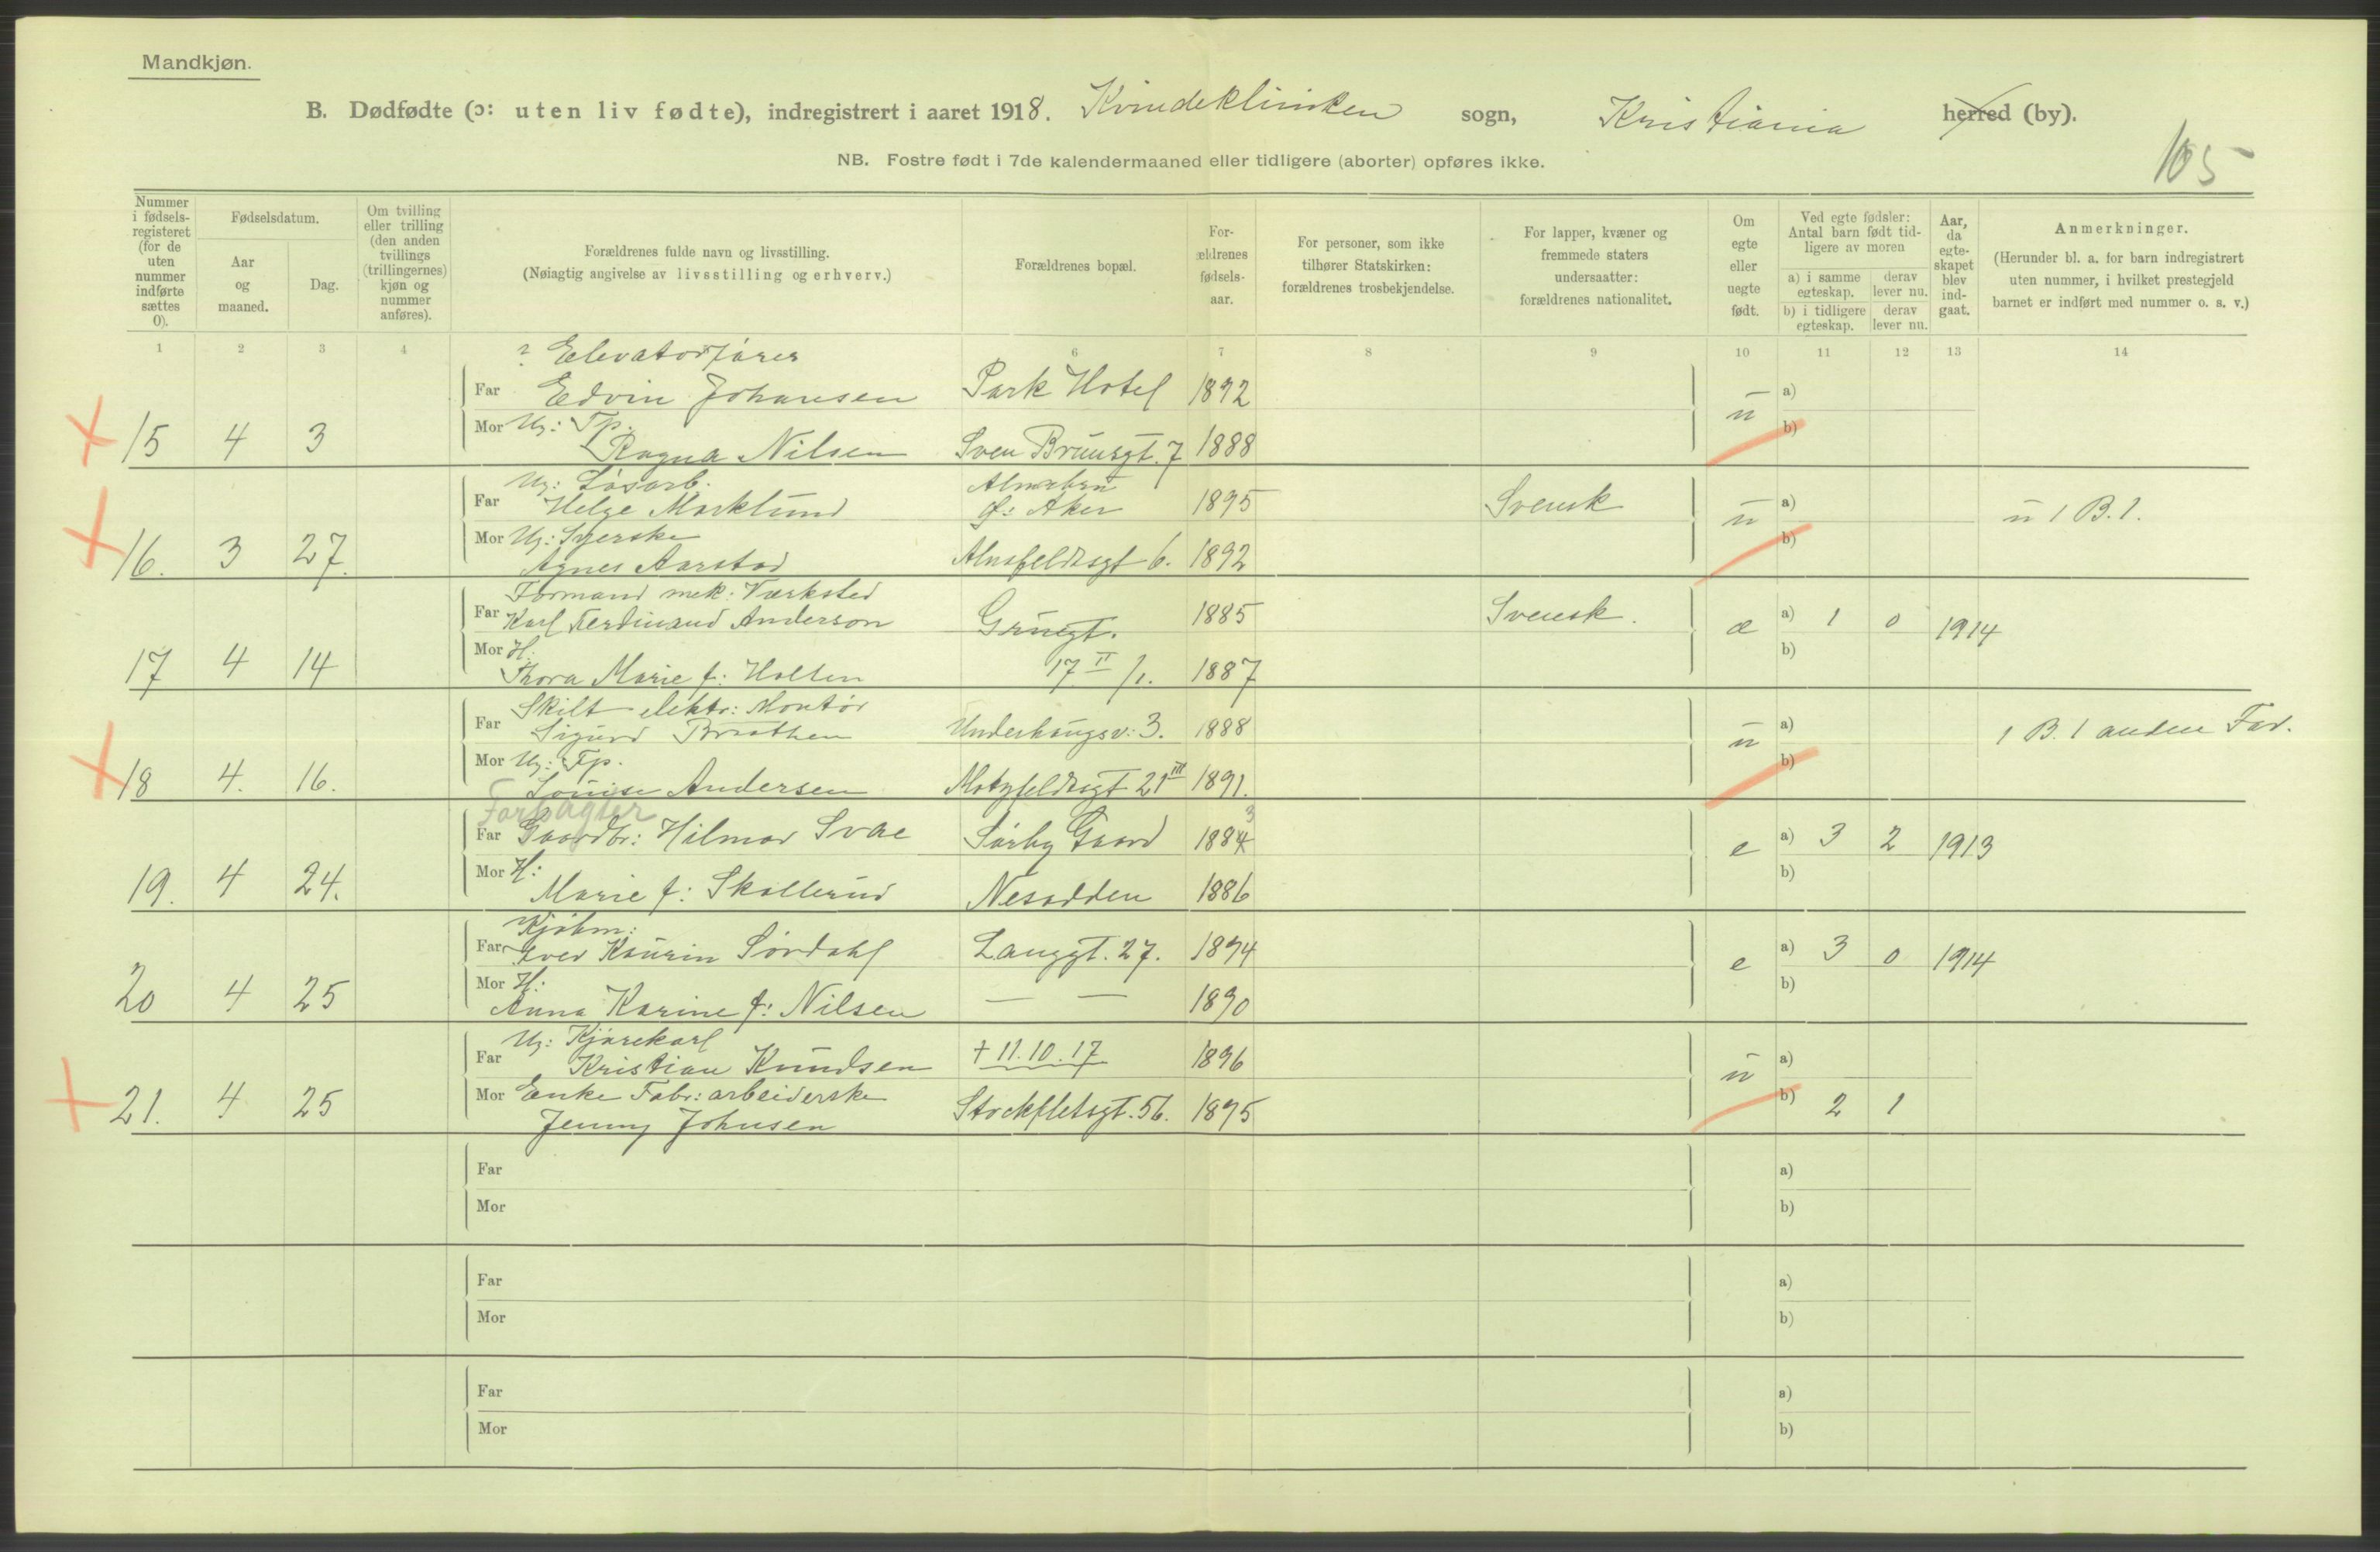 Mandkjøn.
B. Dødfødte (ɔ: uten liv fødte), indregistrert i aaret 1918. Kvindeklinikken sogn, Kristiania herred (by).
NB. Fostre født i 7de kalendermaaned eller tidligere (aborter) opføres ikke.
105
Nummer i fødsels-registeret (for de uten nummer indførte sættes 0).
Fødselsdatum.
Aar og maaned.
Dag.
Om tvilling eller trilling (den anden tvillings (trillingernes) kjøn og nummer anføres).
Forældrenes fulde navn og livsstilling.
(Nøiagtig angivelse av livsstilling og erhverv.)
Forældrenes bopæl.
For-ældrenes fødsels-aar.
For personer, som ikke tilhører Statskirken: forældrenes trosbekjendelse.
For lapper, kvæner og fremmede staters undersaatter: forældrenes nationalitet.
Om egte eller uegte født.
Ved egte fødsler: Antal barn født tid-ligere av moren
a) i samme egteskap. derav lever nu.
b) i tidligere egteskap. derav lever nu.
Aar, da egte-skapet blev ind-gaat.
Anmerkninger.
(Herunder bl. a. for barn indregistrert uten nummer, i hvilket prestegjeld barnet er indført med nummer o. s. v.)
1 2 3 4 6 7 8 9 10 11 12 13 14
? Elevatorfører
Far Edvin Johansen Park Hotel 1892 ū a)
15 4 3 Mor Ug: Tp. Ragna Nilsen Sven Brunsgt. 7 1888 b)
Ug: Løsarb. Alnabru
Far Helge Marklund Ø: Aker 1895 Svensk ū a) ū 1 B. 1.
16. 3 27. Mor Ug: Syerske Agnes Aarstad Alnafeldtsgt 6. 1892 b)
Formand mek: Værksted
Far Karl Ferdinand Anderson Grünergt. 1885 Svensk. æ a) 1 0 1914
17 4 14 Mor H: Thora Marie f: Holten 17 II /1. 1887 b)
Skilt elektr: Montør
Far Sigurd Braathen Underhaugsv: 3. 1888 ū a) 1 B. 1 anden Far.
18 4. 16. Mor Ug: Tp. Louise Andersen Motzfeldtsgt 21 III 1891. b)
Forpagter
Far Gaardbr: Hilmar Svae Sørby Gaard 1884 3 e a) 3 2 1913
19. 4 24. Mor H: Marie f: Skallerud Nesodden 1886 b)
Kjøbm:
Far Iver Kaurin Sørdahl Langgt. 27. 1894 e a) 3 0 1914
20 4 25 Mor H: Anna Karine f: Nilsen — — 1890 b)
Ug: Kjørekarl
Far Kristian Knudsen + 11.10.17 1896 ū a)
21. 4 25 Mor Enke Fabr: arbeiderske Jenny Johnsen Stockfletsgt. 56. 1895 b) 2 1
Far a)
Mor b)
Far a)
Mor b)
Far a)
Mor b)